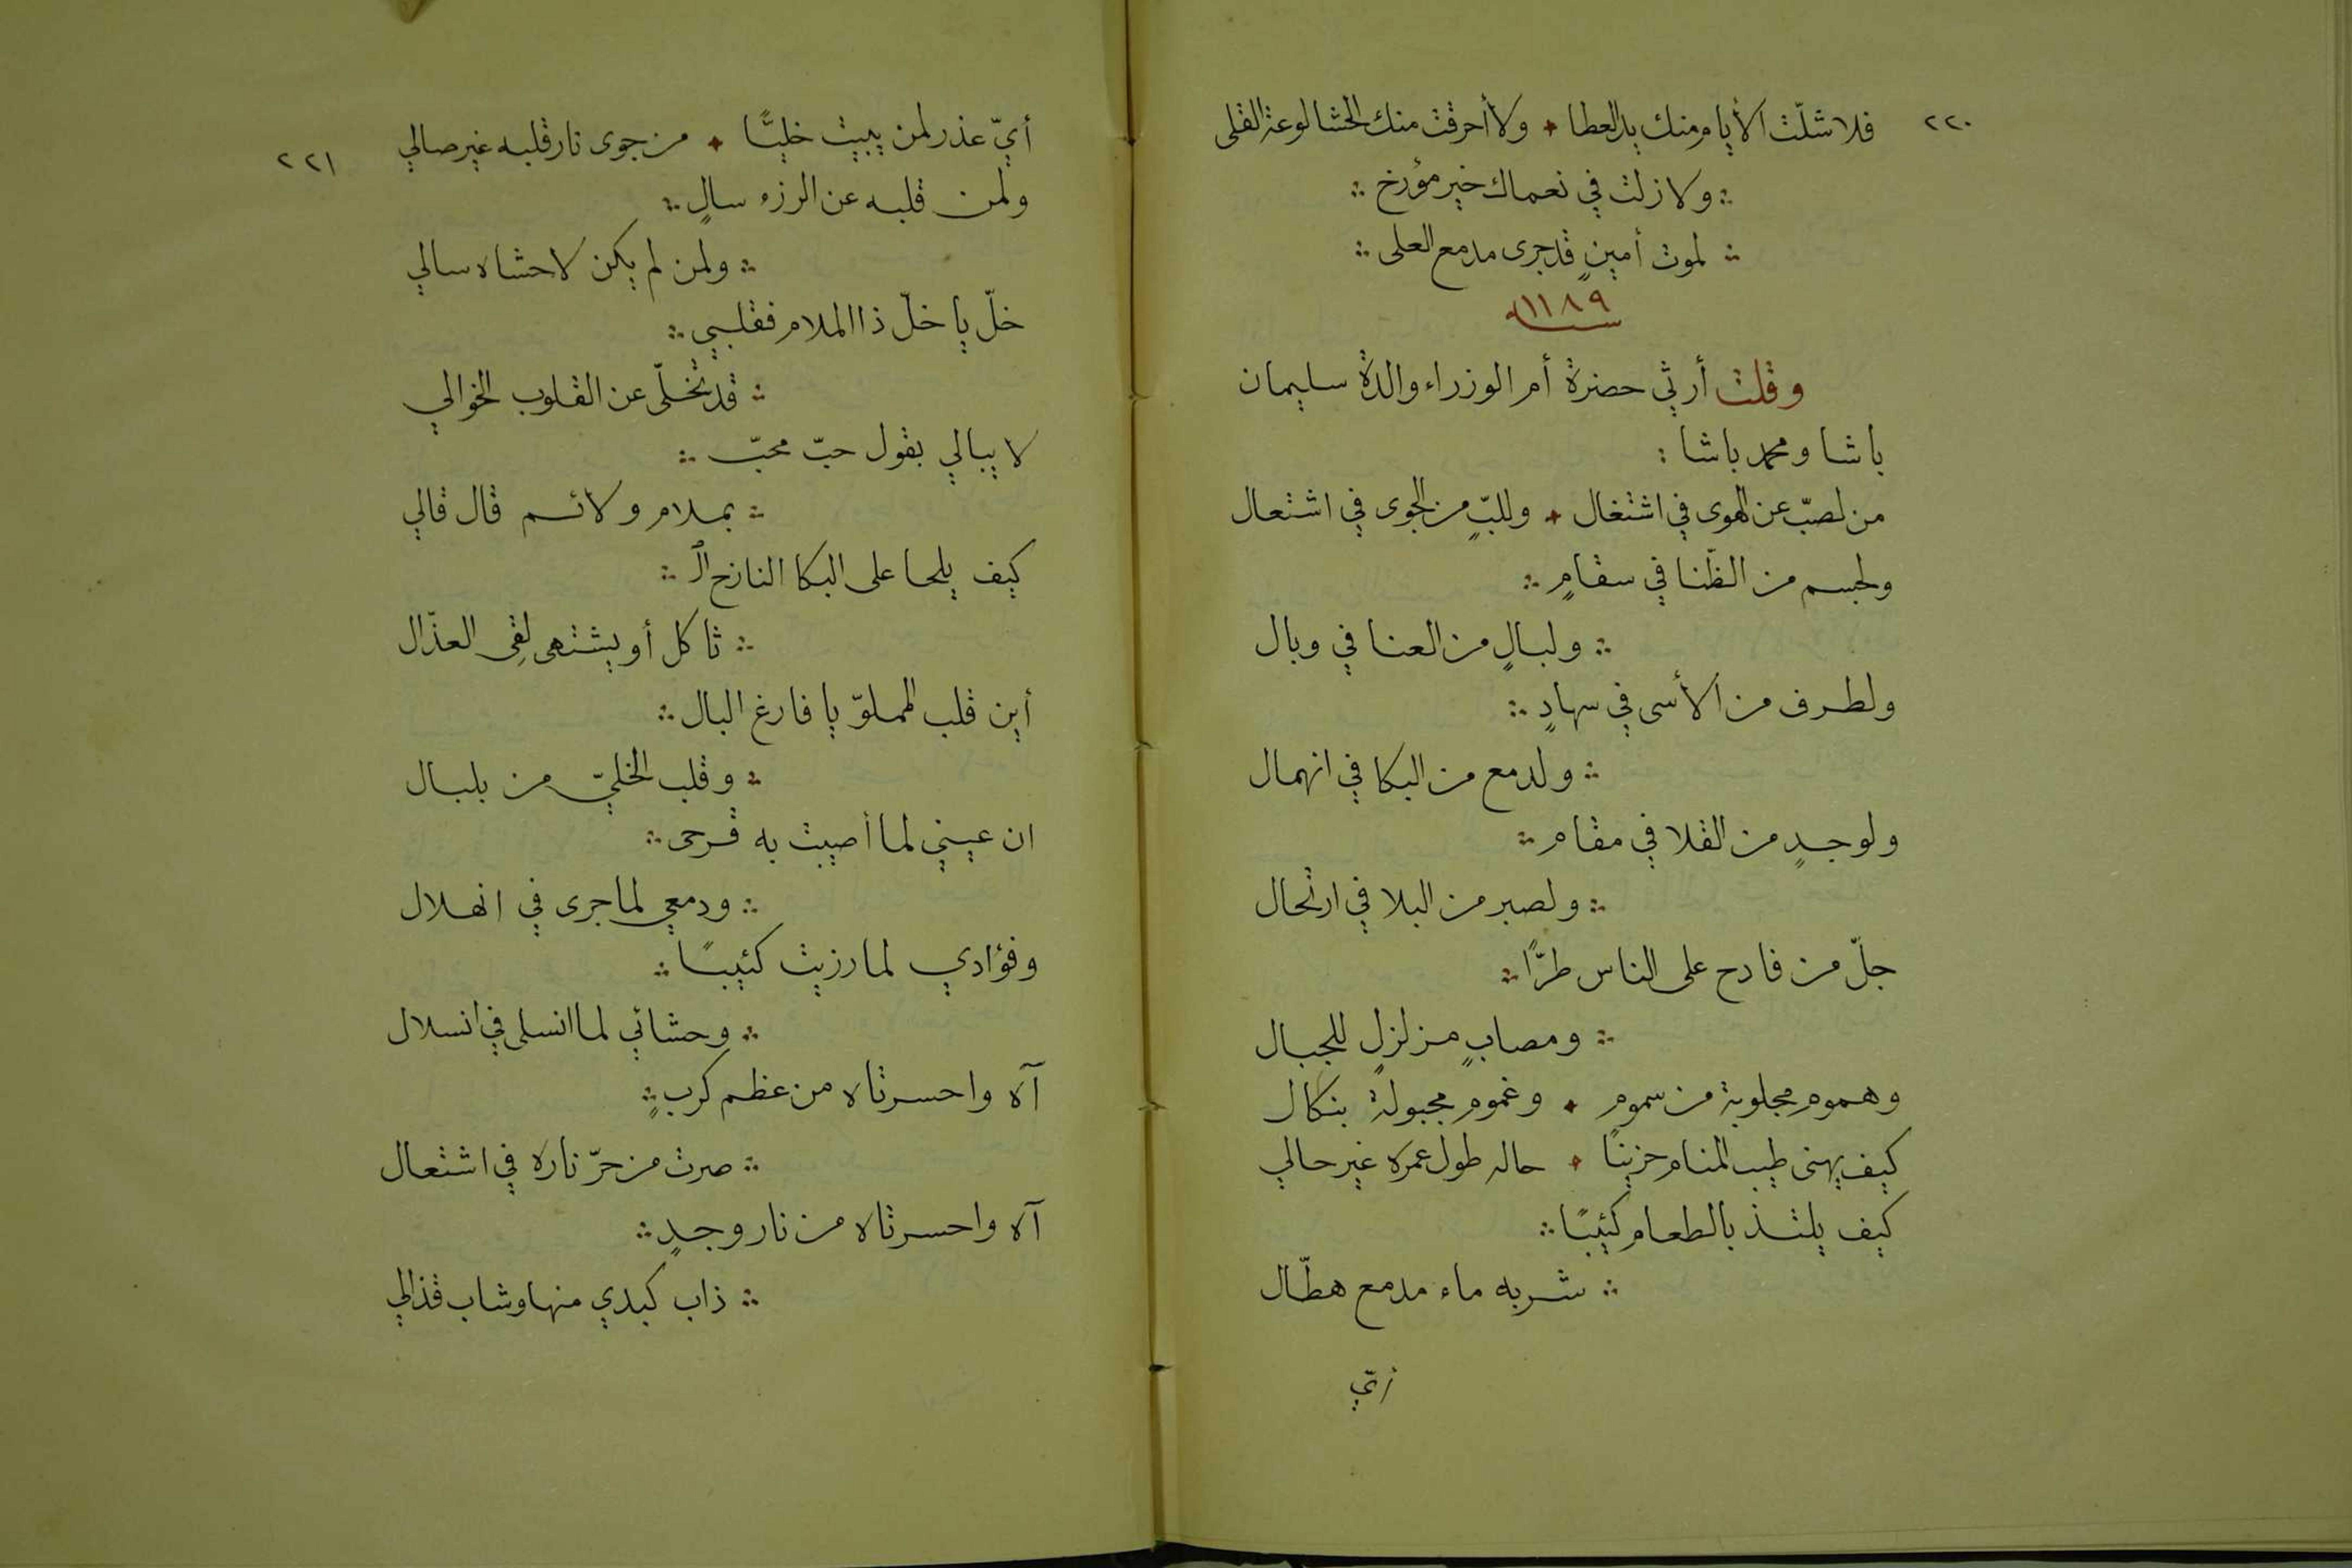 ٢٢٠
فلا شلّت الأيام منك يد العطا ✦ ولا أحرقت منك الحشا لوعة القلى
ولا زلت في نعماك خير مؤرخ
لموت أمينٍ قد جرى مدمع العلى
سنة ١١٨٩
وقلت أرثي حضرة أم الوزراء والدة سليمان
باشا ومحمد باشا :
من لصبّ عن الهوى في اشتغال ✦ وللبٍّ من الجوى في اشتعال
ولجسم من الظّنا في سقامٍ
ولبالٍ من العنا في وبال
ولطرف من الأسى في سهادٍ
ولدمع من البكا في انهمال
ولوجدٍ من القلا في مقام
ولصبر من البلا في ارتحال
جلّ من فادح على الناس طرًّا
ومصابٍ مزلزلٍ للجبال
وهموم مجلوبة من سموم ✦ وغموم مجبولة بنكال
كيف يهنى طيب المنام حزينًا ✦ حاله طول عمره غير حالي
كيف يلتذ بالطعام كئيبًا
شربه ماء مدمع هطّال
أيّ
٢٢١
أيّ عذر لمن يبيت خليًّا ✦ من جوى نار قلبه غير صالي
ولمن قلبه عن الرزء سالٍ
ولمن لم يكن لاحشاه سالي
خلّ يا خلّ ذا الملام فقلبي
قد تخلّى عن القلوب الخوالي
لا يبالي بقول حبّ محبّ
بملام ولائم قال قالي
كيف يلحا على البكا النازح الـ
ثاكل أو يشتهى لِقى العذّال
أين قلب المملوّ يا فارغ البال
وقلب الخليّ من بلبال
ان عيني لما أصيبت به قرحى
ودمعي لما جرى في انهلال
وفؤادي لما رزيت كئيبًا
وحشائي لما انسلى في انسلال
آه واحسرتاه من عظم كربٍ
صرت من حرّ ناره في اشتعال
آه واحسرتاه من نار وجدٍ
ذاب كبدي منها وشاب قذالي